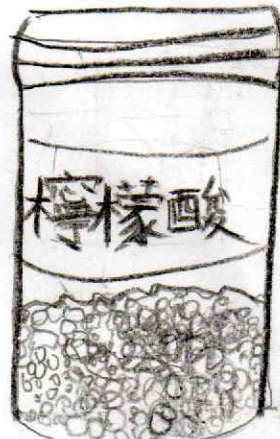 檸檬酸